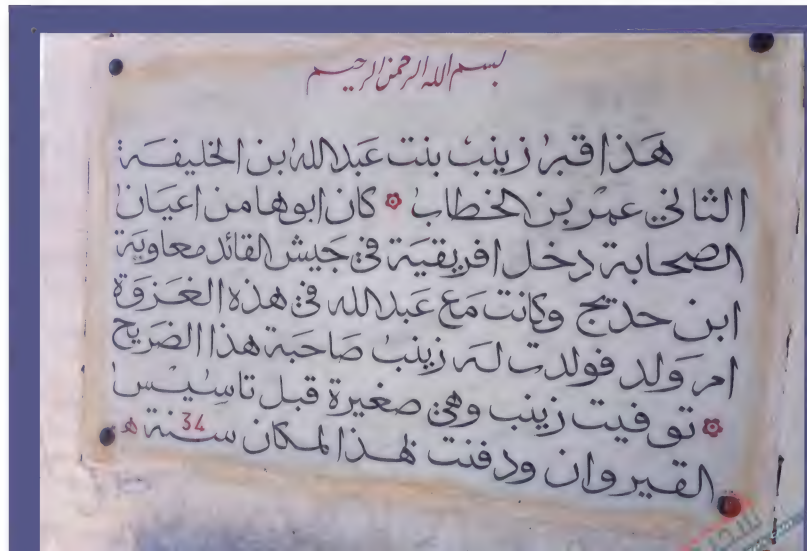 بسم الله الرحمن الرحيم
هذا قبر زينب بنت عبد الله بن الخليفة
الثاني عمر بن الخطاب كان ابوها من اعيان
الصحابة دخل افريقية في جيش القائد معاوية
ابن حديج وكانت مع عبد الله في هذه الغزوة
ام ولد فولدت له زينب صاحبة هذا الضريح
توفيت زينب وهي صغيرة قبل تاسيس
القيروان ودفنت بهذا المكان سنة 34 هـ